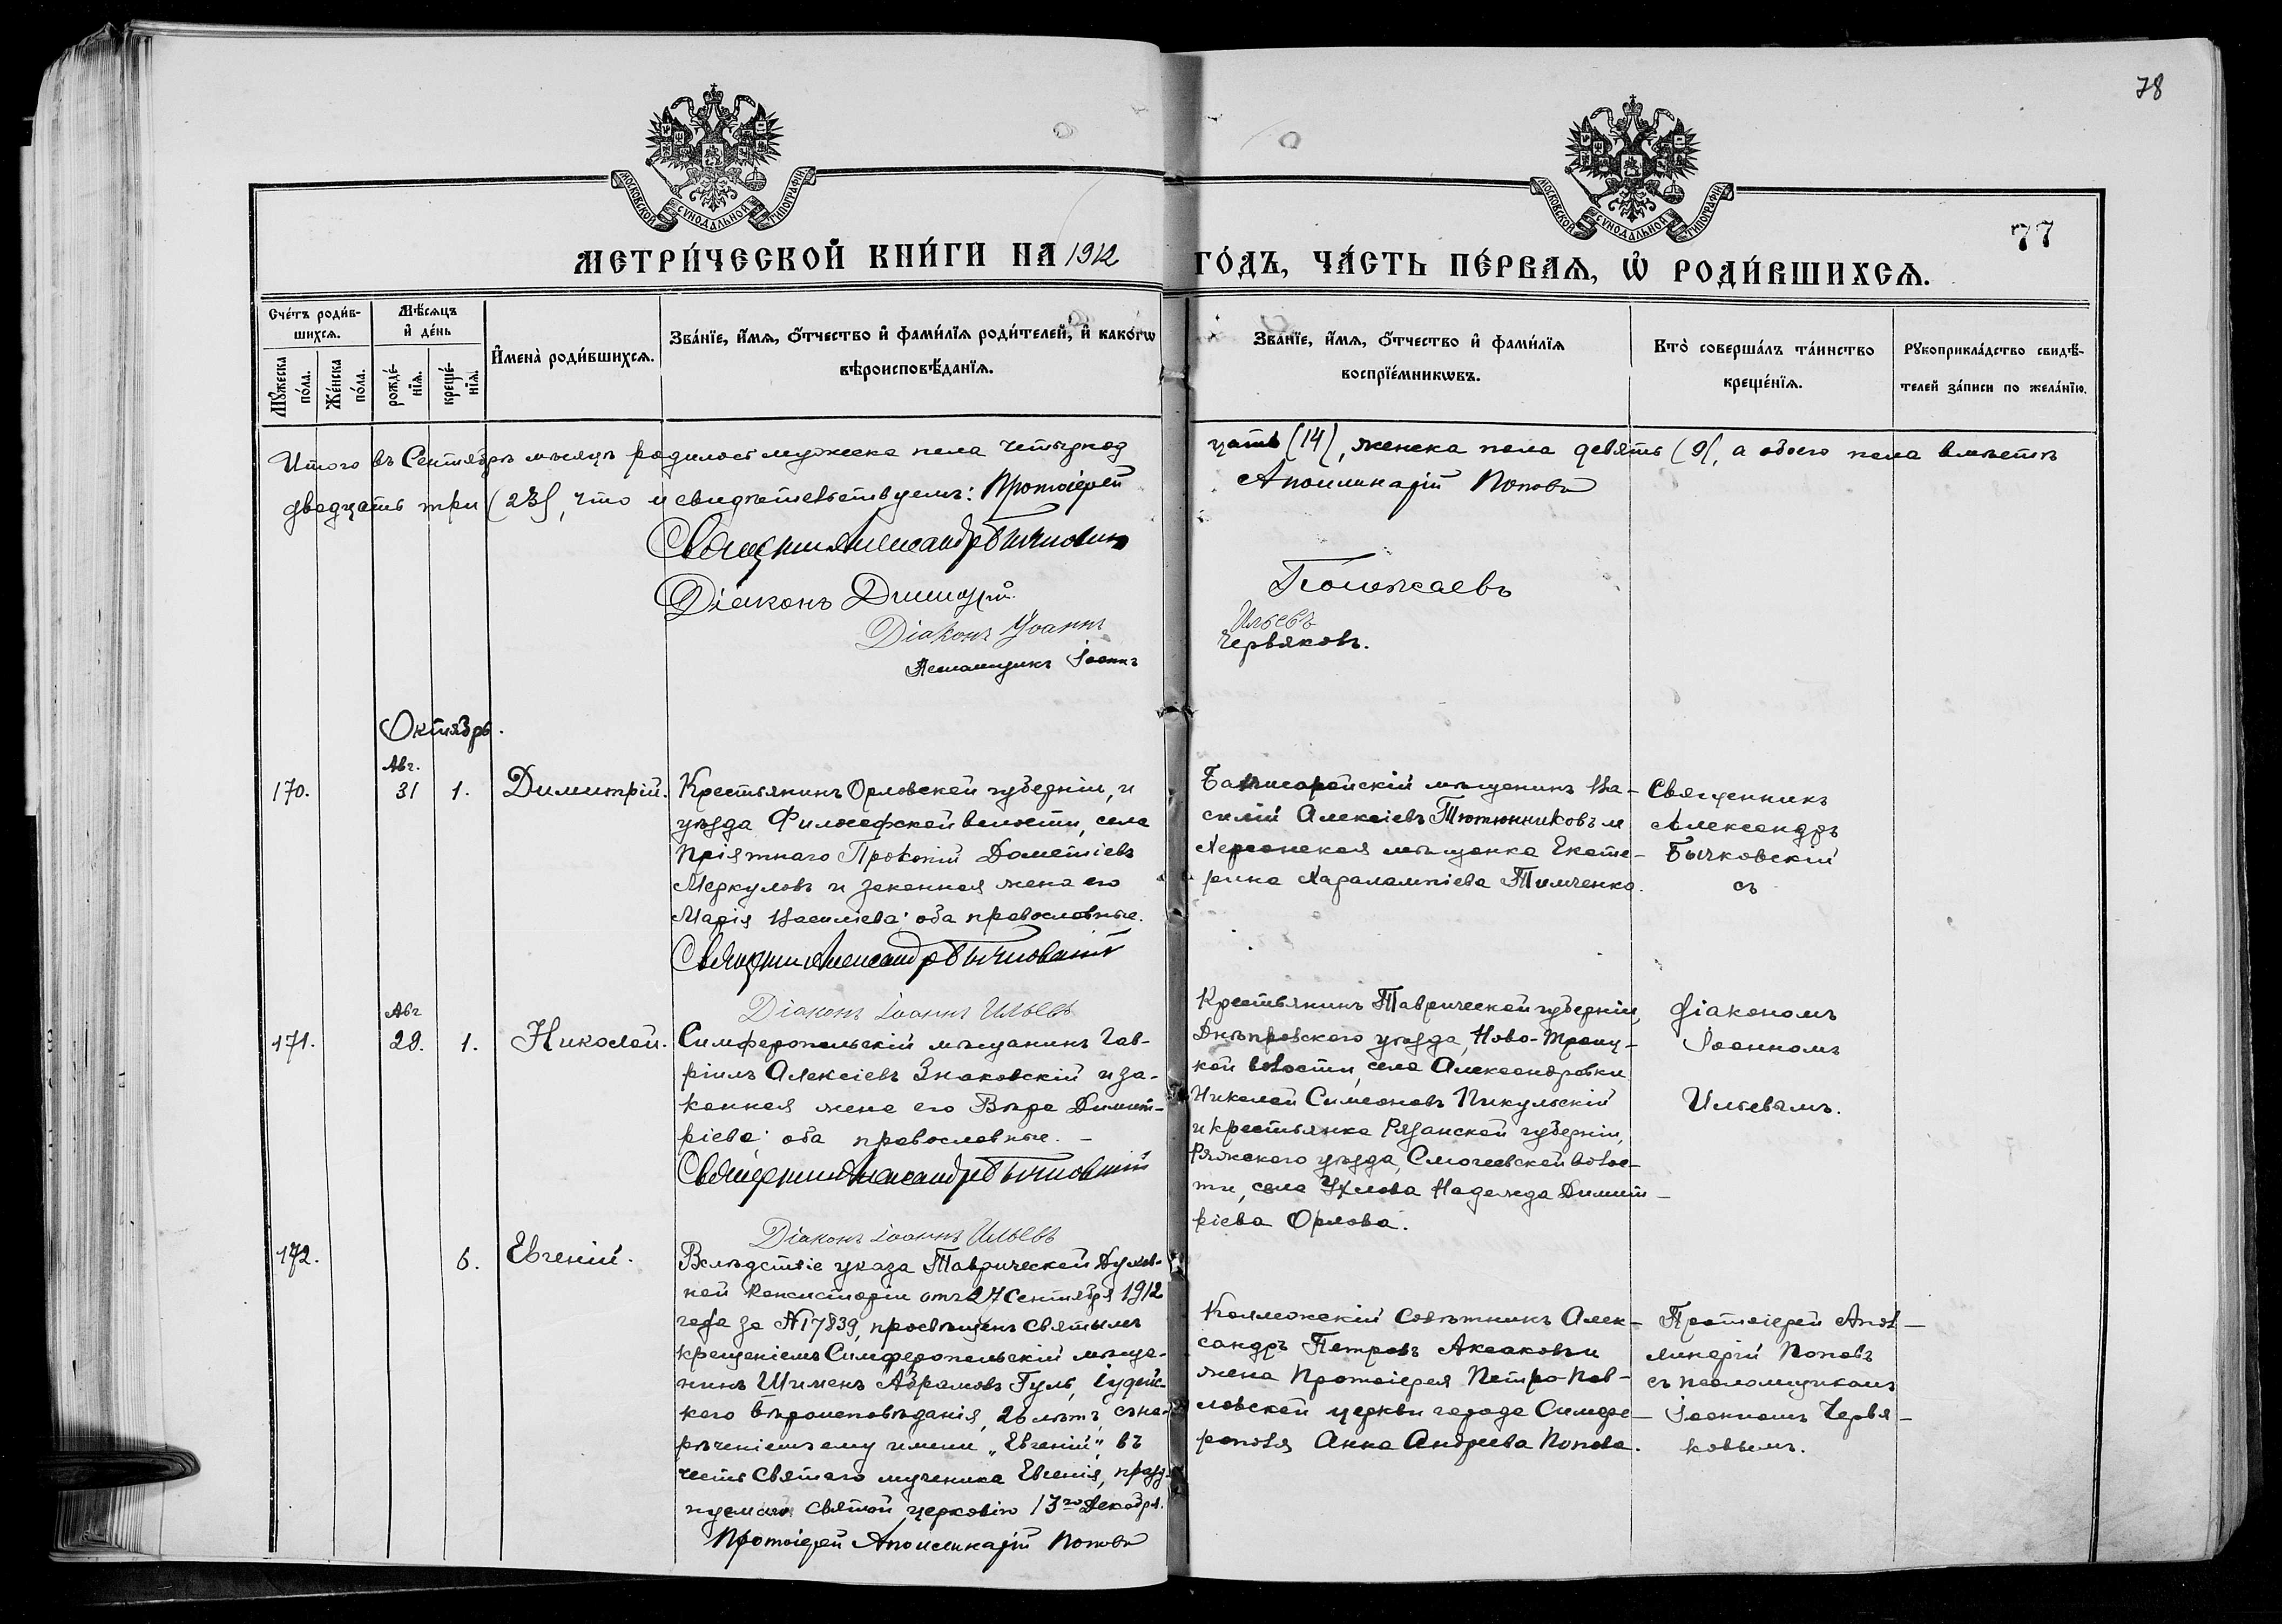 78
МОСКОВСКОЙ СѴНОДАЛЬНОЙ ТИПОГРАФІИ
МОСКОВСКОЙ СѴНОДАЛЬНОЙ ТИПОГРАФІИ
77
МЕТРИ́ЧЕСКОЙ КНИ́ГИ НА 1912 ГО́ДЪ, ЧА́СТЬ ПЕ́РВАѦ, Ѡ҆ РОДИ́ВШИХСѦ.
Сче́тъ роди́в-
шихсѧ.
Мꙋ́жеска по́ла.
Же́нска по́ла.
Мѣ́сѧцъ
и҆ де́нь
рожде́-
нїѧ.
креще́-
нїѧ.
И҆мена̀ роди́вшихсѧ.
Зва́нїе, и҆́мѧ, ѻ҆́тчество и҆ фами́лїѧ роди́телей, и҆ како́гѡ
вѣроисповѣ́данїѧ.
Зва́нїе, и҆́мѧ, ѻ҆́тчество и҆ фами́лїѧ
воспрїе́мникѡвъ.
Кто̀ соверша́лъ та́инство
креще́нїѧ.
Рꙋкоприкла́дство свидѣ́-
телей за́писи по жела́нїю.
Итого въ Сентябрѣ мѣсяцѣ родилось мужеска пола четырнад
цать (14), женска пола девять (9), а обоего пола вмѣстѣ
двадцать три (23), что и свидѣтельствуемъ: Протоіерей
Аполлинарій Поповъ
Священникъ Александръ Бычковскій
Діаконъ Димитрій
Положаевъ
Діаконъ Іоаннъ
Ильевъ
Псаломщикъ Іоаннъ
Червяковъ.
Октябрь.
Авг.
170.
31
1.
Димитрій.
Крестьянинъ Орловской губерніи, и
уѣзда Философской волости, села
Пріятнаго Прокопій Дометіевъ
Меркуловъ и законная жена его
Марія Василіева оба православные.
Священникъ Александръ Бычковскій
Діаконъ Іоаннъ Ильевъ
Бахчисарайскій мѣщанинъ Ва-
силій Алексіевъ Тютюнниковъ и
Херсонская мѣщанка Екате-
рина Харалампіева Тимченко.
Священникъ
Александръ
Бычковскій
съ
Авг
171.
29.
1.
Николай.
Симферопольскій мѣщанинъ Гав-
ріилъ Алексіевъ Знаковскій и за-
конная жена его Вѣра Димит-
ріева оба православные. -
Священникъ Александръ Бычковскій
Діаконъ Іоаннъ Ильевъ
Крестьянинъ Таврической губерніи,
Днѣпровского уѣзда, Ново-Троиц-
кой волости, села Александровки
Николай Симеоновъ Пикульскій
и крестьянка Рязанской губерніи,
Ряжского уѣзда, волос-
ти, села Надежда Димит-
ріева Орлова.
діакономъ
Іоанномъ
Ильевымъ.
172.
6.
Евгеній.
Вслѣдствіе указа Таврической Духов-
ной Консисторіи отъ 27 Сентября 1912
года за №17839, просвѣщенъ святымъ
крещеніемъ Симферопольскій мѣща-
нинъ Шименъ Абрамовъ Гуль, іудейс-
кого вѣроисповѣданія, 26 лѣтъ, съ на-
рѣченіемъ ему имени „Евгеній“, въ
честь Святаго мученика Евгенія, празд-
нуемаго святой церковію 13го Декабря.
Протоіерей Аполлинарій Поповъ
Коллежскій Совѣтникъ Алек-
сандръ Петровъ Аксаковъ и
жена Протоіерея Петро-Пав-
ловской церкви города Симфе-
рополя Анна Андреева Попова.
Протоіерей Апол-
линарій Поповъ
съ псаломщикомъ
Іоанномъ Червя-
ковымъ.